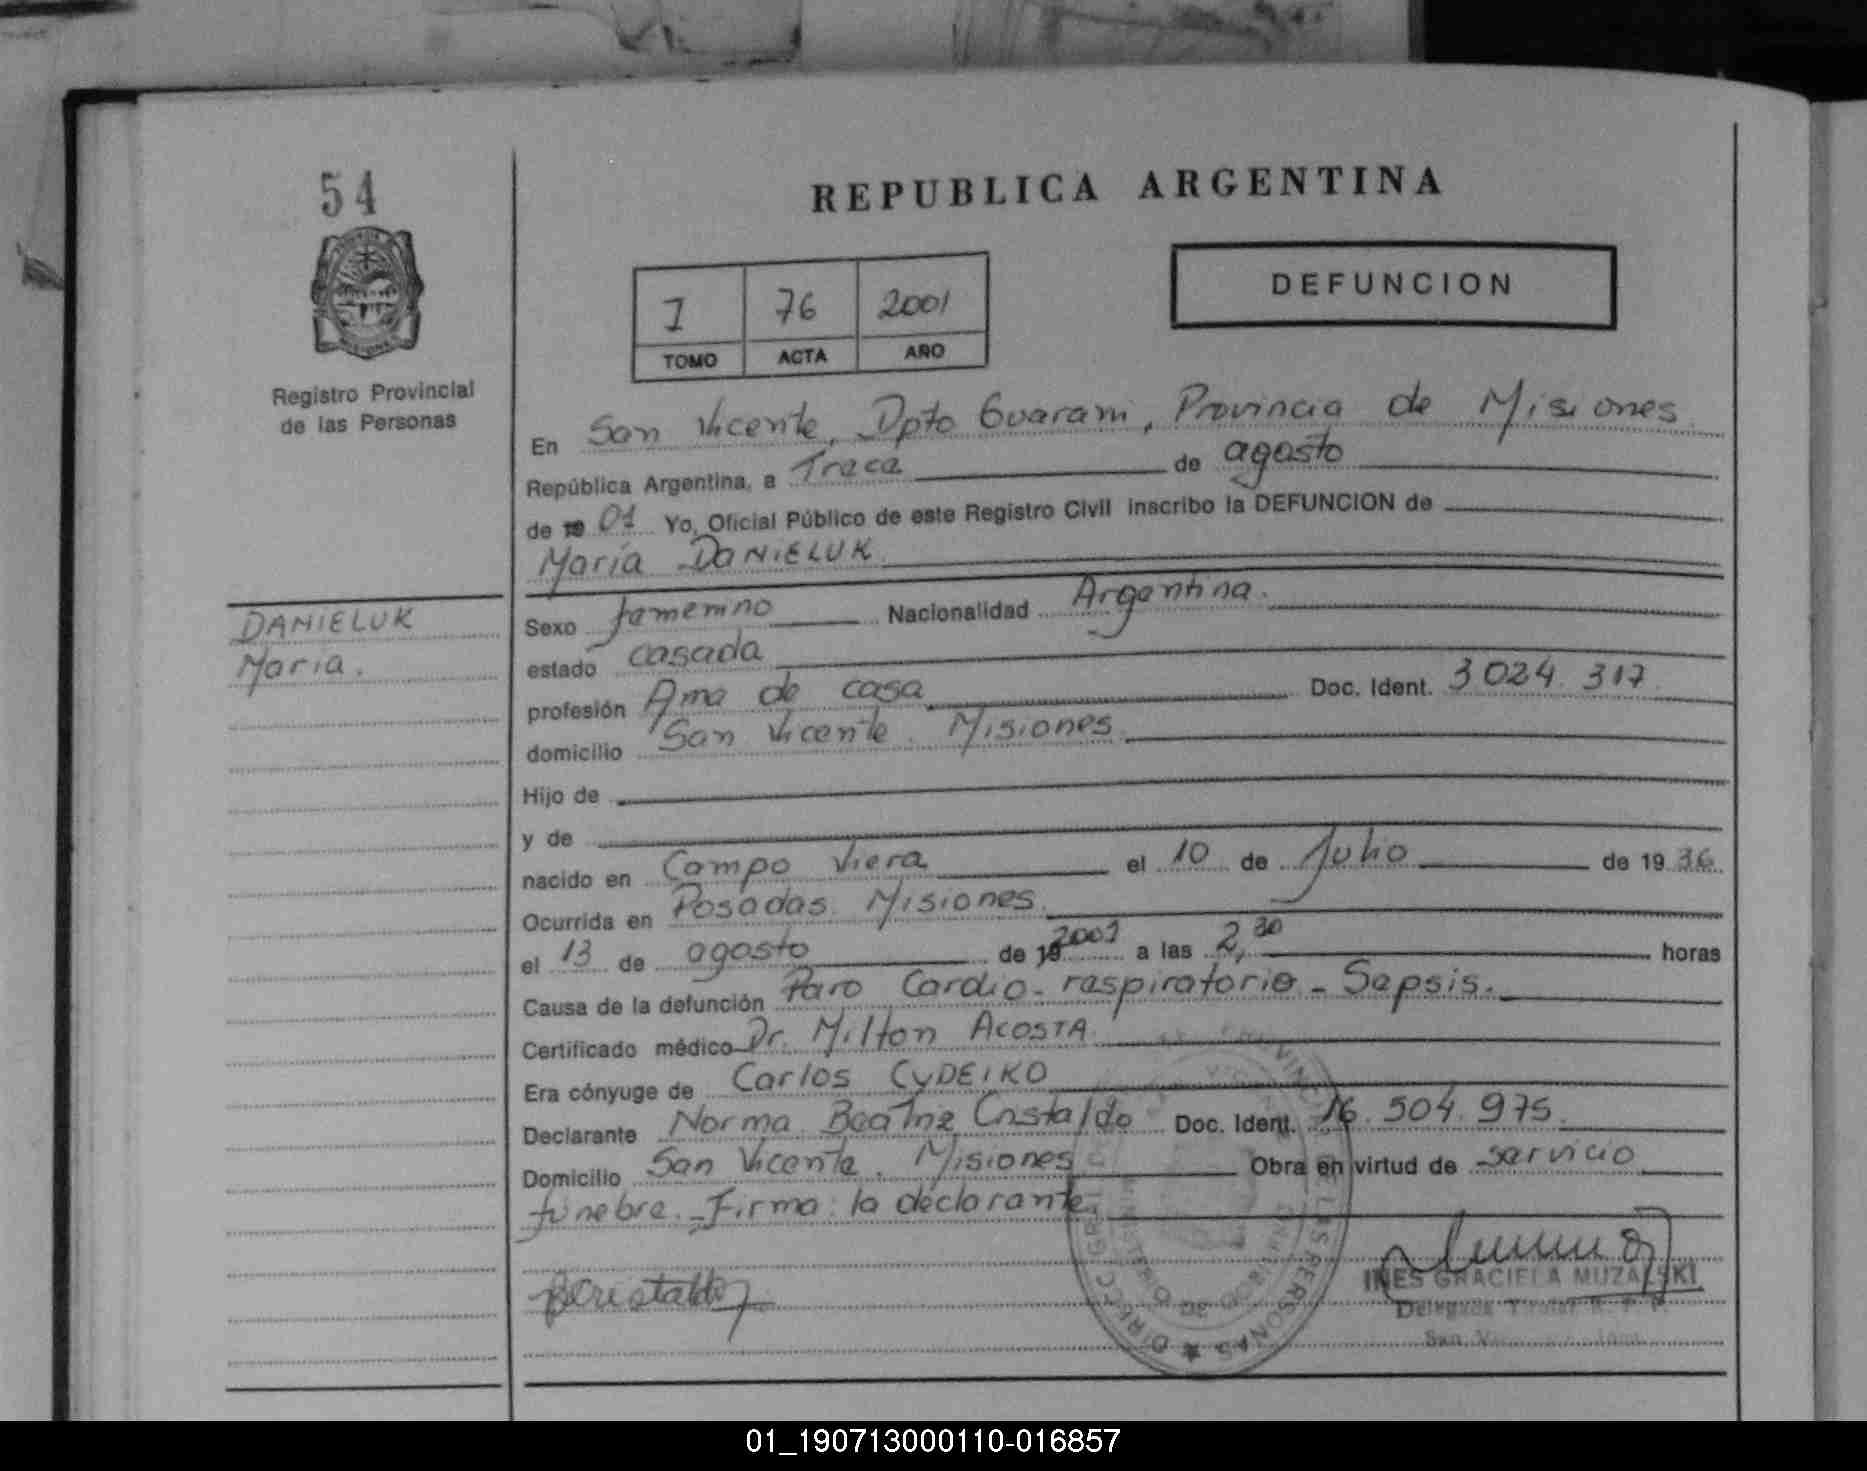 54
REPUBLICA ARGENTINA
DEFUNCION
I 76 2001
TOMO ACTA AÑO
Registro Provincial
de las Personas
En San Vicente, Dpto Guarani, Provincia de Misiones
República Argentina, a Trece de agosto
de 19 01 Yo, Oficial Público de este Registro Civil inscribo la DEFUNCION de
María DANIELUK
DANIELUK
Maria.
Sexo femenino Nacionalidad Argentina.
estado casada
profesión Ama de casa Doc. Ident. 3024.317
domicilio San Vicente. Misiones.
Hijo de
y de
nacido en Campo Viera el 10 de Julio de 19 36
Ocurrida en Posadas. Misiones.
el 13 de agosto de 19 2001 a las 2,30 horas
Causa de la defunción Paro Cardio-respiratorio - Sepsis.
Certificado médico Dr. Milton ACOSTA
Era cónyuge de Carlos CYDEIKO
Declarante Norma Beatriz Cristaldo Doc. Ident. 16.504.975
Domicilio San Vicente. Misiones Obra en virtud de servicio
fúnebre. Firma: la declarante
INES GRACIELA MUZALSKI
Delegada Titular R. P. P.
01_190713000110-016857